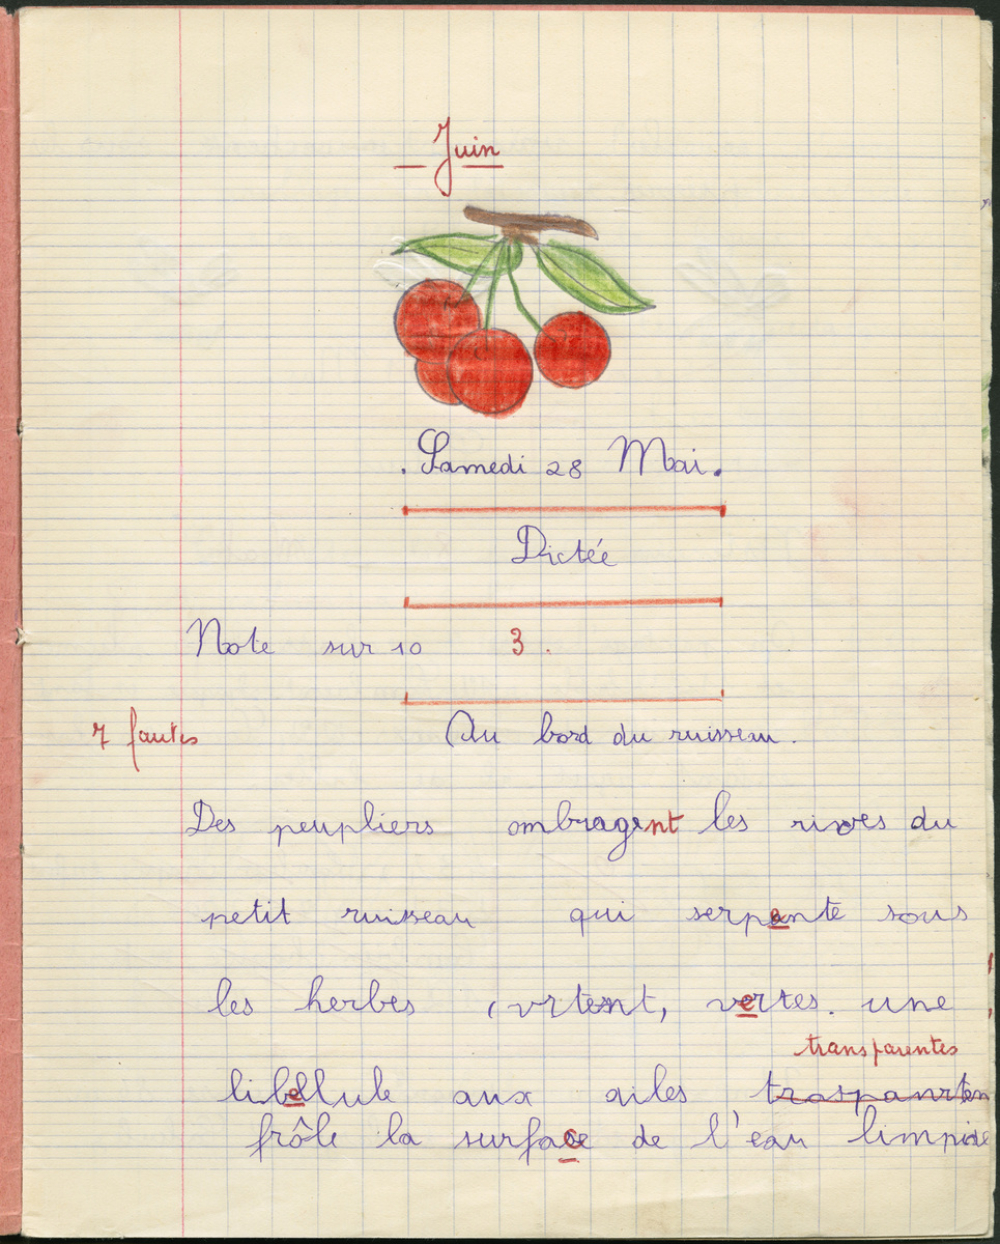 Juin
Samedi 28 Mai.
Dictée
Note sur 10 3.
7 fautes
Au bord du ruisseau.
Des peupliers ombragent les rives du
petit ruisseau qui serpente sous
les herbes (vrtent, vertes. une
transparentes
libellule aux ailes traspanrten
frôle la surface de l'eau limpide